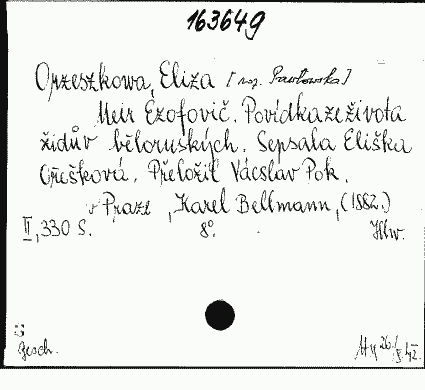 163649
Orzeszkowa, Eliza [roz. Pawłowska]
Meir Ezofovič. Povídka ze života
židův běloruských. Sepsala Eliška
Ořešková. Přeložil Václav Pok.
v Praze, Karel Bellmann, (1882.)
II, 330 S. 8°. Hlw.
Gesch.